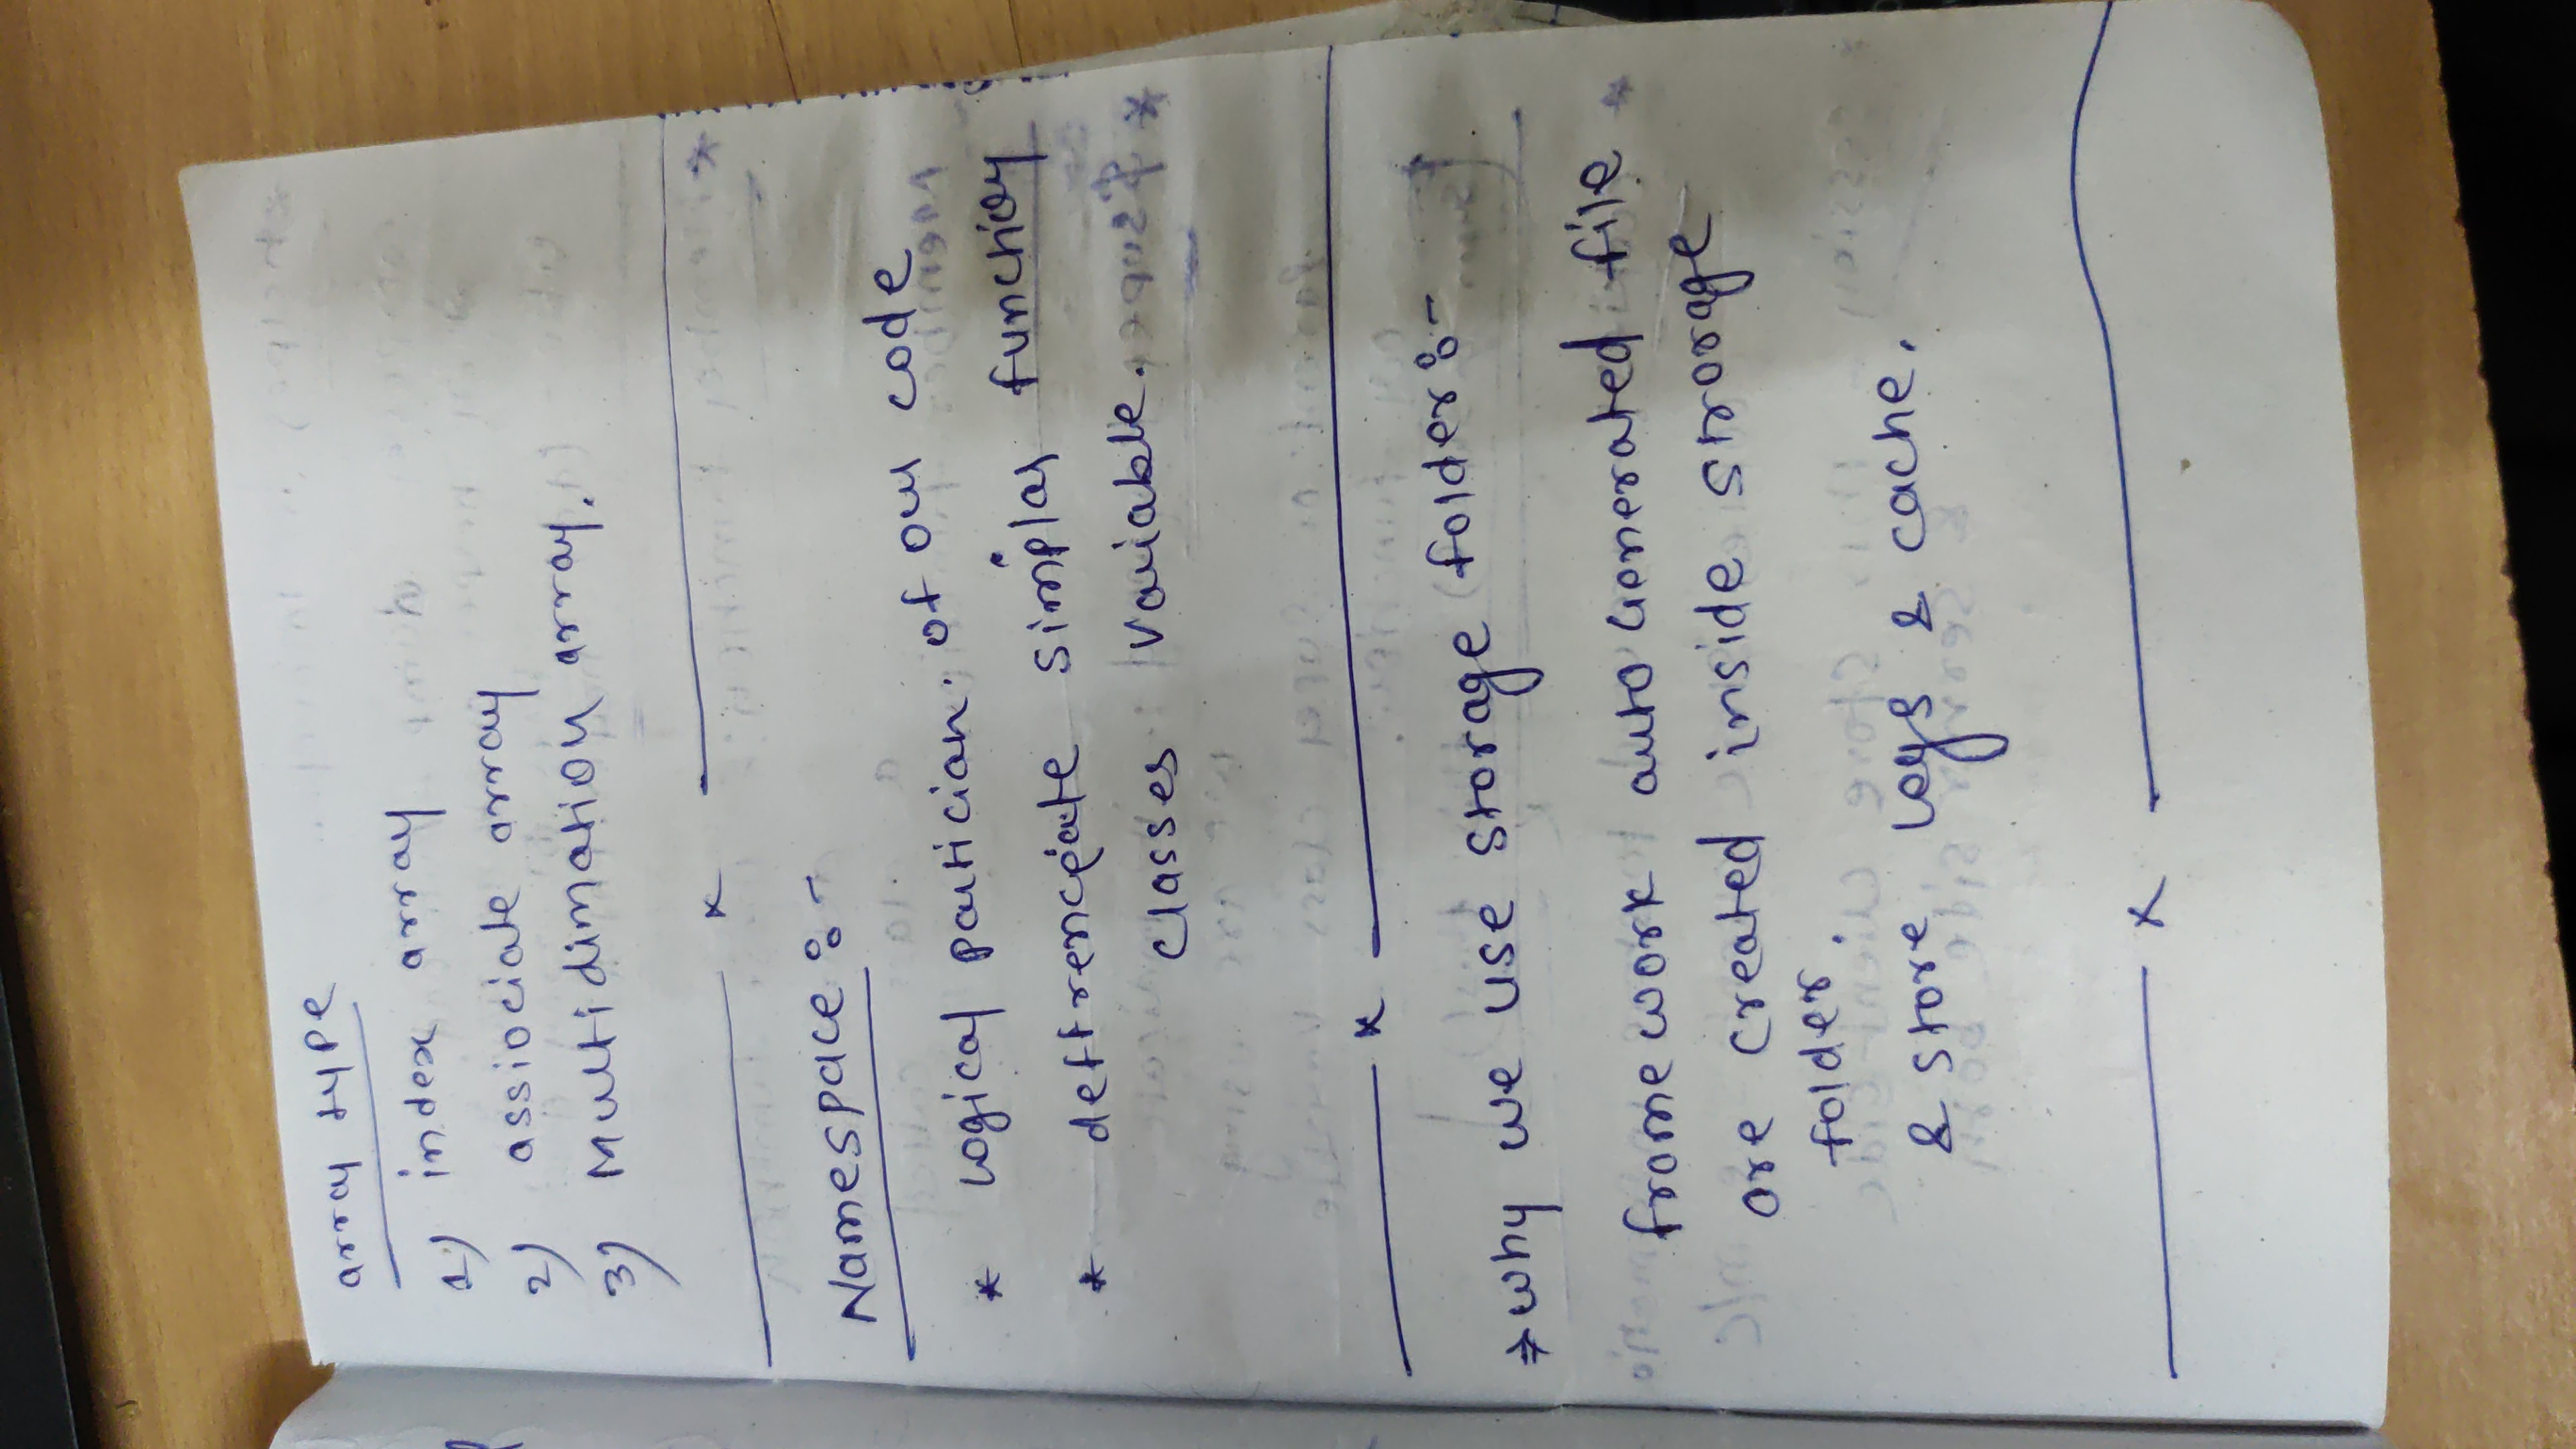 array type
1) index array
2) assiociate array
3) Multidimation array.
x
Namespace :-
* logical partician. of our code
* deffrenceate simplar function
classes variable.
x
⇒ why we use storage folder :-
frame work auto Generated file
are created inside strorage
folder.
& store logs & cache.
x